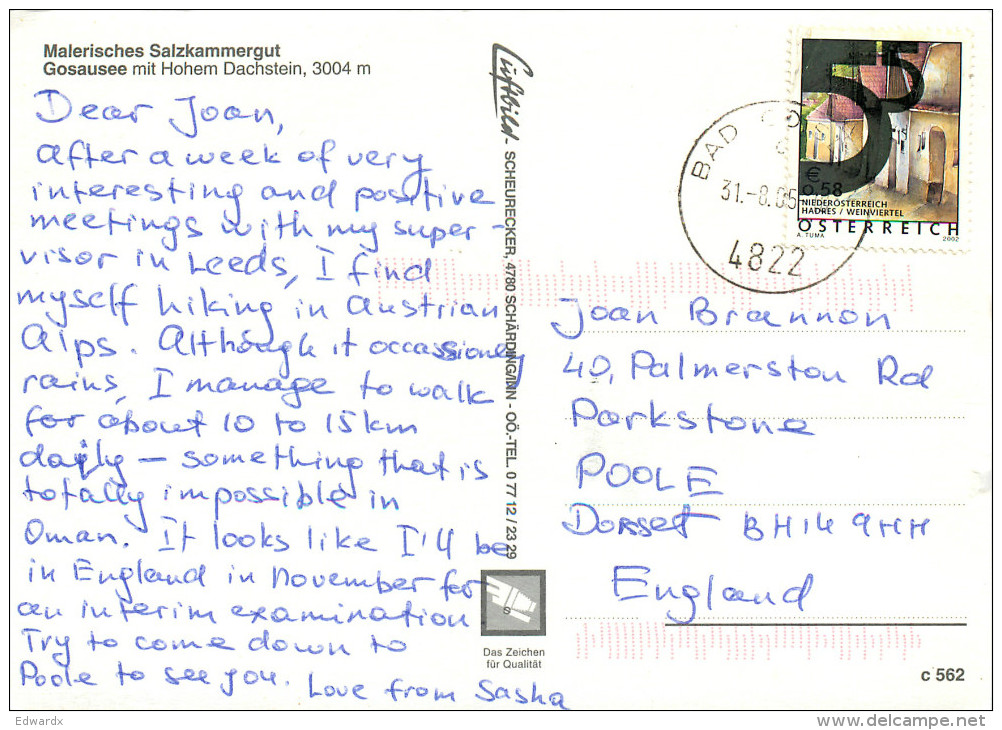 Malerisches Salzkammergut
Gosausee mit Hohem Dachstein, 3004 m
Dear Joan,
after a week of very
interesting and positive
meetings with my super-
visor in Leeds, I find
myself hiking in Austrian
Alps. Although it occassionaly
rains, I manage to walk
for about 10 to 15 km
daily – something that is
totally impossible in
Oman. It looks like I'll be
in England in November for
an interim examination.
Try to come down to
Poole to see you. Love from Sasha
Luftbild SCHEURECKER, 4780 SCHÄRDING/INN - OÖ.-TEL. 0 77 12 / 23 29
Das Zeichen
für Qualität
BAD GO
31.-8.05
4822
55
€
0,58
NIEDERÖSTERREICH
HADRES / WEINVIERTEL
ÖSTERREICH
A. TUMA 2002
Joan Brannon
40, Palmerston Rd
Parkstone
POOLE
Dorset BH14 9HH
England
c 562
Edwardx
www.delcampe.net